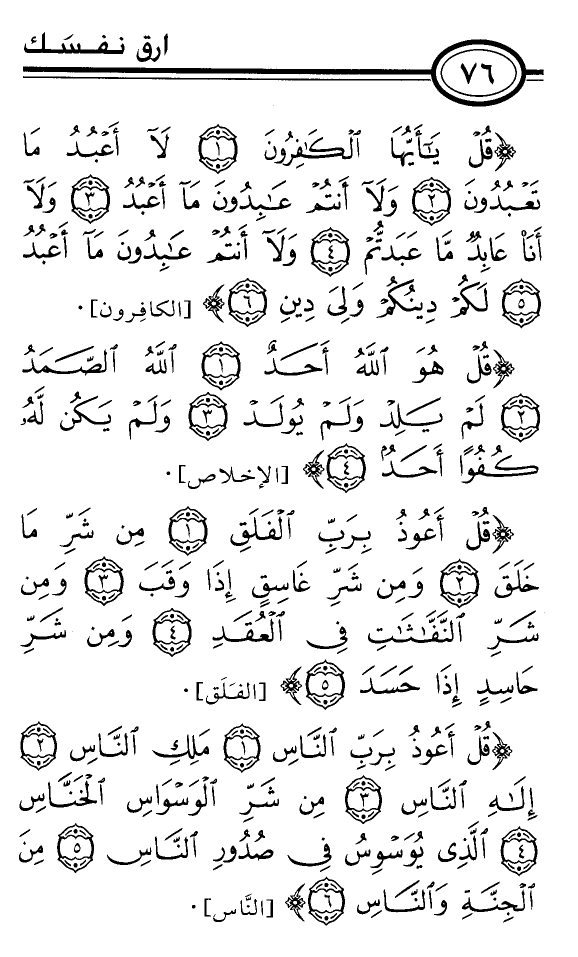 ارق نفسك
٧٦
﴿قُلْ يَٰٓأَيُّهَا ٱلْكَٰفِرُونَ ١ لَآ أَعْبُدُ مَا
تَعْبُدُونَ ٢ وَلَآ أَنتُمْ عَٰبِدُونَ مَآ أَعْبُدُ ٣ وَلَآ
أَنَا۠ عَابِدٌ مَّا عَبَدتُّمْ ٤ وَلَآ أَنتُمْ عَٰبِدُونَ مَآ أَعْبُدُ
٥ لَكُمْ دِينُكُمْ وَلِىَ دِينِ ٦﴾ [الكافرون].
﴿قُلْ هُوَ ٱللَّهُ أَحَدٌ ١ ٱللَّهُ ٱلصَّمَدُ
٢ لَمْ يَلِدْ وَلَمْ يُولَدْ ٣ وَلَمْ يَكُن لَّهُۥ
كُفُوًا أَحَدٌۢ ٤﴾ [الإخلاص].
﴿قُلْ أَعُوذُ بِرَبِّ ٱلْفَلَقِ ١ مِن شَرِّ مَا
خَلَقَ ٢ وَمِن شَرِّ غَاسِقٍ إِذَا وَقَبَ ٣ وَمِن
شَرِّ ٱلنَّفَّٰثَٰتِ فِى ٱلْعُقَدِ ٤ وَمِن شَرِّ
حَاسِدٍ إِذَا حَسَدَ ٥﴾ [الفلق].
﴿قُلْ أَعُوذُ بِرَبِّ ٱلنَّاسِ ١ مَلِكِ ٱلنَّاسِ ٢
إِلَٰهِ ٱلنَّاسِ ٣ مِن شَرِّ ٱلْوَسْوَاسِ ٱلْخَنَّاسِ
٤ ٱلَّذِى يُوَسْوِسُ فِى صُدُورِ ٱلنَّاسِ ٥ مِنَ
ٱلْجِنَّةِ وَٱلنَّاسِ ٦﴾ [النَّاس].